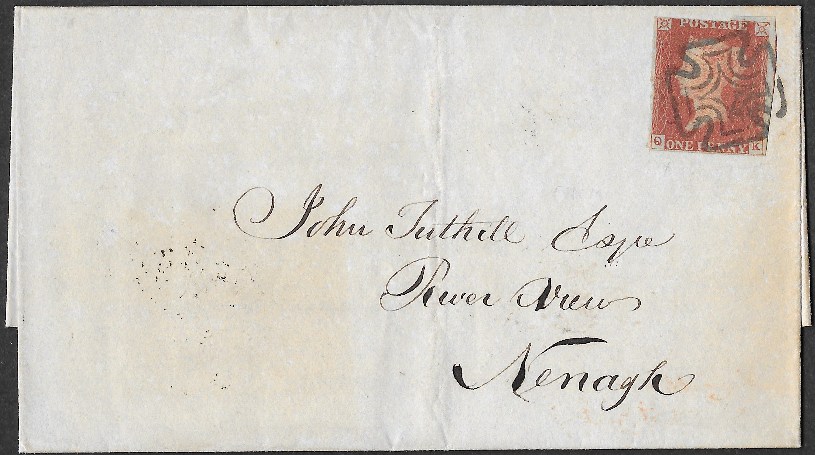 POSTAGE
Q ONE PENNY K
John Tuthill Esqre
River View
Nenagh